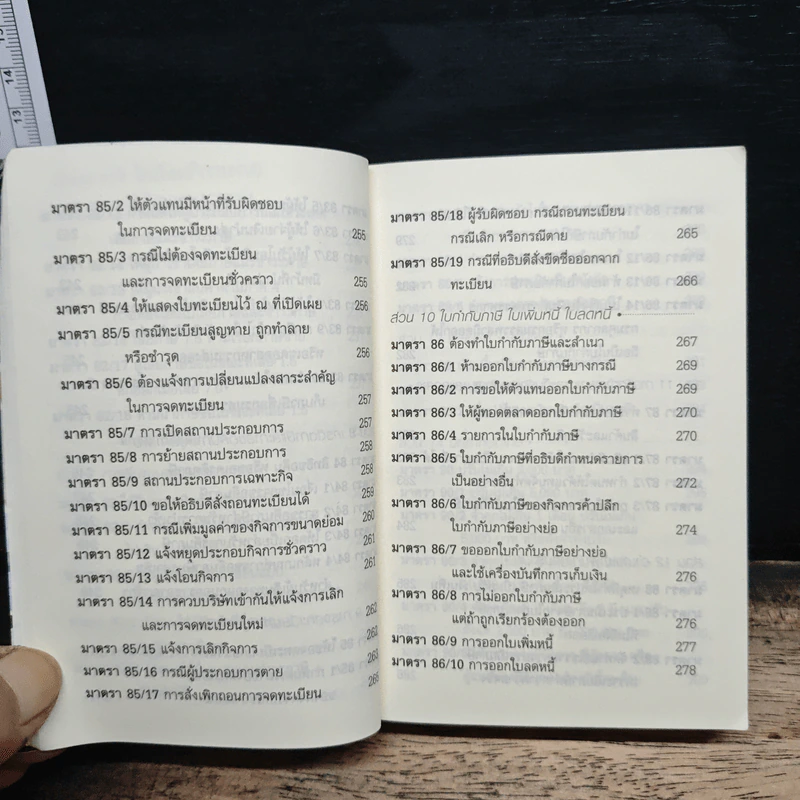 15
14
13
มาตรา 85/2 ให้ตัวแทนมีหน้าที่รับผิดชอบ
ในการจดทะเบียน 255
มาตรา 85/3 กรณีไม่ต้องจดทะเบียน
และการจดทะเบียนชั่วคราว 255
มาตรา 85/4 ให้แสดงใบทะเบียนไว้ ณ ที่เปิดเผย 256
มาตรา 85/5 กรณีทะเบียนสูญหาย ถูกทำลาย
หรือชำรุด 256
มาตรา 85/6 ต้องแจ้งการเปลี่ยนแปลงสาระสำคัญ
ในการจดทะเบียน 257
มาตรา 85/7 การเปิดสถานประกอบการ 257
มาตรา 85/8 การย้ายสถานประกอบการ 258
มาตรา 85/9 สถานประกอบการเฉพาะกิจ 258
มาตรา 85/10 ขอให้อธิบดีสั่งถอนทะเบียนได้ 259
มาตรา 85/11 กรณีเพิ่มมูลค่าของกิจการขนาดย่อม 260
มาตรา 85/12 แจ้งหยุดประกอบกิจการชั่วคราว 261
มาตรา 85/13 แจ้งโอนกิจการ 261
มาตรา 85/14 การควบบริษัทเข้ากันให้แจ้งการเลิก
และการจดทะเบียนใหม่ 262
มาตรา 85/15 แจ้งการเลิกกิจการ 262
มาตรา 85/16 กรณีผู้ประกอบการตาย 263
มาตรา 85/17 การสั่งเพิกถอนการจดทะเบียน 265
มาตรา 85/18 ผู้รับผิดชอบ กรณีถอนทะเบียน
กรณีเลิก หรือกรณีตาย 265
มาตรา 85/19 กรณีที่อธิบดีสั่งขีดชื่อออกจาก
ทะเบียน 266
ส่วน 10 ใบกำกับภาษี ใบเพิ่มหนี้ ใบลดหนี้ •
มาตรา 86 ต้องทำใบกำกับภาษีและสำเนา 267
มาตรา 86/1 ห้ามออกใบกำกับภาษีบางกรณี 269
มาตรา 86/2 การขอให้ตัวแทนออกใบกำกับภาษี 269
มาตรา 86/3 ให้ผู้ทอดตลาดออกใบกำกับภาษี 270
มาตรา 86/4 รายการในใบกำกับภาษี 270
มาตรา 86/5 ใบกำกับภาษีที่อธิบดีกำหนดรายการ
เป็นอย่างอื่น 272
มาตรา 86/6 ใบกำกับภาษีของกิจการค้าปลีก
ใบกำกับภาษีอย่างย่อ 274
มาตรา 86/7 ขอออกใบกำกับภาษีอย่างย่อ
และใช้เครื่องบันทึกการเก็บเงิน 276
มาตรา 86/8 การไม่ออกใบกำกับภาษี
แต่ถ้าถูกเรียกร้องต้องออก 276
มาตรา 86/9 การออกใบเพิ่มหนี้ 277
มาตรา 86/10 การออกใบลดหนี้ 278